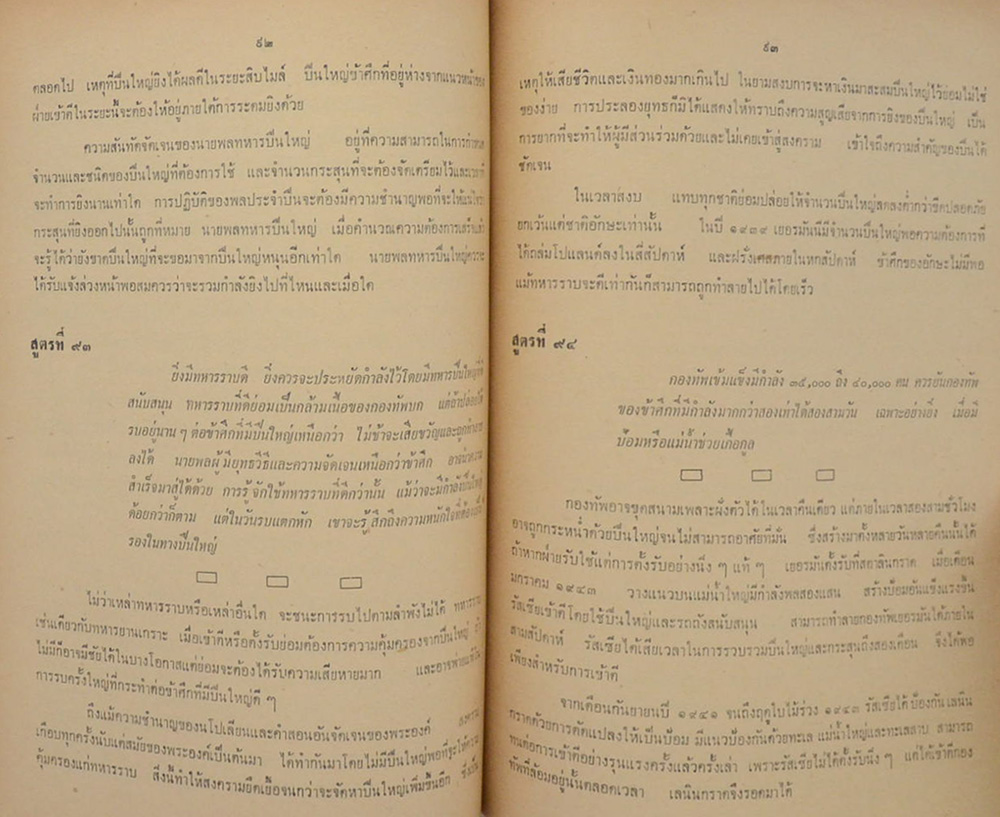 ๙๒
ตลอดไป เหตุที่ปืนใหญ่ยิงได้ผลดีในระยะสิบไมล์ ปืนใหญ่ข้าศึกที่อยู่ห่างจากแนวหน้าของ
ฝ่ายเข้าตีในระยะนี้จะต้องให้อยู่ภายใต้การระดมยิงด้วย
ความสันทัดจัดเจนของนายพลทหารปืนใหญ่ อยู่ที่ความสามารถในการกำหนด
จำนวนและชนิดของปืนใหญ่ที่ต้องการใช้ และจำนวนกระสุนที่จะต้องจัดเตรียมไว้และเวลาที่
จะทำการยิงนานเท่าใด การปฏิบัติของพลประจำปืนจะต้องมีความชำนาญพอที่จะให้แน่ใจว่า
กระสุนที่ยิงออกไปนั้นถูกที่หมาย นายพลทหารปืนใหญ่ เมื่อคำนวณความต้องการเสร็จแล้ว
จะรู้ได้ว่ายังขาดปืนใหญ่ที่จะขอมาจากปืนใหญ่หนุนอีกเท่าใด นายพลทหารปืนใหญ่ควรจะ
ได้รับแจ้งล่วงหน้าพอสมควรว่าจะรวมกำลังยิงไปที่ไหนและเมื่อใด
สูตรที่ ๙๓
ยิ่งมีทหารราบดี ยิ่งควรจะประหยัดกำลังไว้โดยมีทหารปืนใหญ่ที่ดี
สนับสนุน ทหารราบที่ดีย่อมเป็นกล้ามเนื้อของกองทัพบก แต่ถ้าปล่อยให้
รบอยู่นาน ๆ ต่อข้าศึกที่มีปืนใหญ่เหนือกว่า ไม่ช้าจะเสียขวัญและถูกทำลาย
ลงได้ นายพลผู้มียุทธวิธีและความจัดเจนเหนือกว่าข้าศึก อาจนำความ
สำเร็จมาสู่ได้ด้วย การรู้จักใช้ทหารราบที่ดีกว่านั้น แม้ว่าจะมีกำลังปืนใหญ่
ด้อยกว่าก็ตาม แต่ในวันรบแตกหัก เขาจะรู้สึกถึงความหนักใจที่ต้องเป็น
รองในทางปืนใหญ่
ไม่ว่าเหล่าทหารราบหรือเหล่าอื่นใด จะชนะการรบไปตามลำพังไม่ได้ ทหารราบ
เช่นเดียวกับทหารยานเกราะ เมื่อเข้าตีหรือตั้งรับย่อมต้องการความคุ้มครองจากปืนใหญ่ ถ้า
ไม่มีก็อาจมีชัยได้ในบางโอกาสแต่ย่อมจะต้องได้รับความเสียหายมาก และอาจพ่ายแพ้ใน
การรบครั้งใหญ่ที่กระทำต่อข้าศึกที่มีปืนใหญ่ดี ๆ
ถึงแม้ความชำนาญของนโปเลียนและคำสอนอันจัดเจนของพระองค์ สงคราม
เกือบทุกครั้งนับแต่สมัยของพระองค์เป็นต้นมา ได้ทำกันมาโดยไม่มีปืนใหญ่พอที่จะให้ความ
คุ้มครองแก่ทหารราบ สิ่งนี้ทำให้สงครามยืดเยื้อจนกว่าจะจัดหาปืนใหญ่เพิ่มขึ้นอีก ซึ่งเป็น
๙๓
เหตุให้เสียชีวิตและเงินทองมากเกินไป ในยามสงบการจะหาเงินมาสะสมปืนใหญ่ไว้ย่อมไม่ใช่
ของง่าย การประลองยุทธก็มิได้แสดงให้ทราบถึงความสูญเสียจากการยิงของปืนใหญ่ เป็น
การยากที่จะทำให้ผู้มีส่วนร่วมด้วยและไม่เคยเข้าสู่สงคราม เข้าใจถึงความสำคัญของปืนได้
ชัดเจน
ในเวลาสงบ แทบทุกชาติย่อมปล่อยให้จำนวนปืนใหญ่ลดลงต่ำกว่าขีดปลอดภัย
ยกเว้นแต่ชาติอักษะเท่านั้น ในปี ๑๙๓๙ เยอรมันมีจำนวนปืนใหญ่พอความต้องการที่
ได้ถล่มโปแลนด์ลงในสี่สัปดาห์ และฝรั่งเศสภายในหกสัปดาห์ ข้าศึกของอักษะไม่มีพอ
แม้ทหารราบจะดีเท่ากันก็สามารถถูกทำลายไปได้โดยเร็ว
สูตรที่ ๙๔
กองทัพเข้มแข็งมีกำลัง ๓๕,๐๐๐ ถึง ๔๐,๐๐๐ คน ควรยันกองทัพ
ของข้าศึกที่มีกำลังมากกว่าสองเท่าได้สองสามวัน เฉพาะอย่างยิ่ง เมื่อมี
ป้อมหรือแม่น้ำช่วยเกื้อกูล
กองทัพอาจขุดสนามเพลาะฝังตัวได้ในเวลาคืนเดียว แต่ภายในเวลาสองสามชั่วโมง
อาจถูกกระหน่ำด้วยปืนใหญ่จนไม่สามารถอาศัยที่มั่น ซึ่งสร้างมาตั้งหลายวันหลายคืนนั้นได้
ถ้าหากฝ่ายรับใช้แต่การตั้งรับอย่างนิ่ง ๆ แท้ ๆ เยอรมันตั้งรับที่สตาลินกราด เมื่อเดือน
มกราคม ๑๙๔๓ วางแนวบนแม่น้ำใหญ่มีกำลังพลสองแสน สร้างป้อมอันแข็งแรงขึ้น
รัสเซียเข้าตีโดยใช้ปืนใหญ่และรถถังสนับสนุน สามารถทำลายกองทัพเยอรมันได้ภายใน
สามสัปดาห์ รัสเซียได้เสียเวลาในการรวบรวมปืนใหญ่และกระสุนถึงสองเดือน จึงได้พอ
เพียงสำหรับการเข้าตี
จากเดือนกันยายนปี ๑๙๔๑ จนถึงฤดูใบไม้ร่วง ๑๙๔๓ รัสเซียได้ป้องกันเลนิน
กราดด้วยการดัดแปลงให้เป็นป้อม มีแนวป้องกันด้วยทะเล แม่น้ำใหญ่และทะเลสาบ สามารถ
ทนต่อการเข้าตีอย่างรุนแรงครั้งแล้วครั้งเล่า เพราะรัสเซียไม่ได้ตั้งรับนิ่ง ๆ แต่ได้เข้าตีกอง
ทัพที่ล้อมอยู่นั้นตลอดเวลา เลนินกราดจึงรอดมาได้